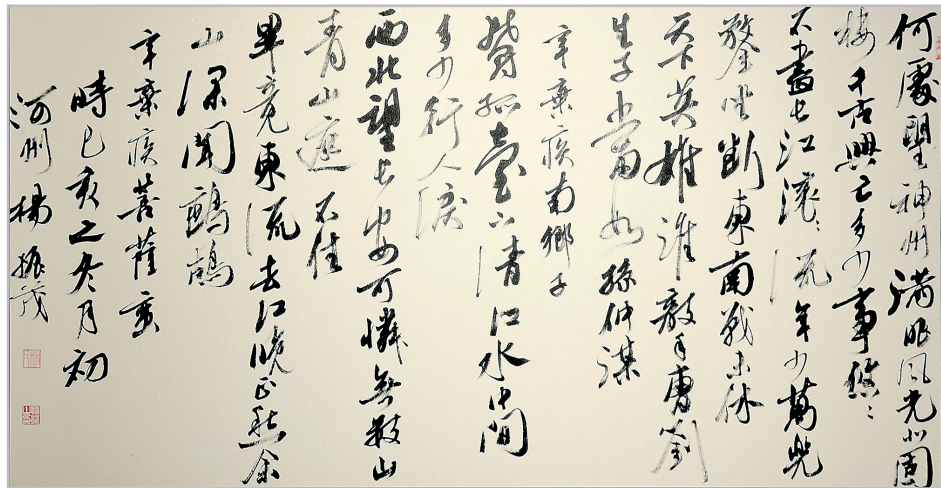 何處望神州滿眼風光北固
樓千古興亡多少事悠〻
不盡長江滾〻流年少萬兜
鍪坐斷東南戰未休
天下英雄誰敵手曹劉
生子當如孫仲謀
辛棄疾南鄉子
鬱孤臺下清江水中間
多少行人淚
西北望長安可憐無數山
青山遮不住
畢竟東流去江晚正愁余
山深聞鷓鴣
辛棄疾菩薩蠻
時己亥之冬月初
河州楊振茂